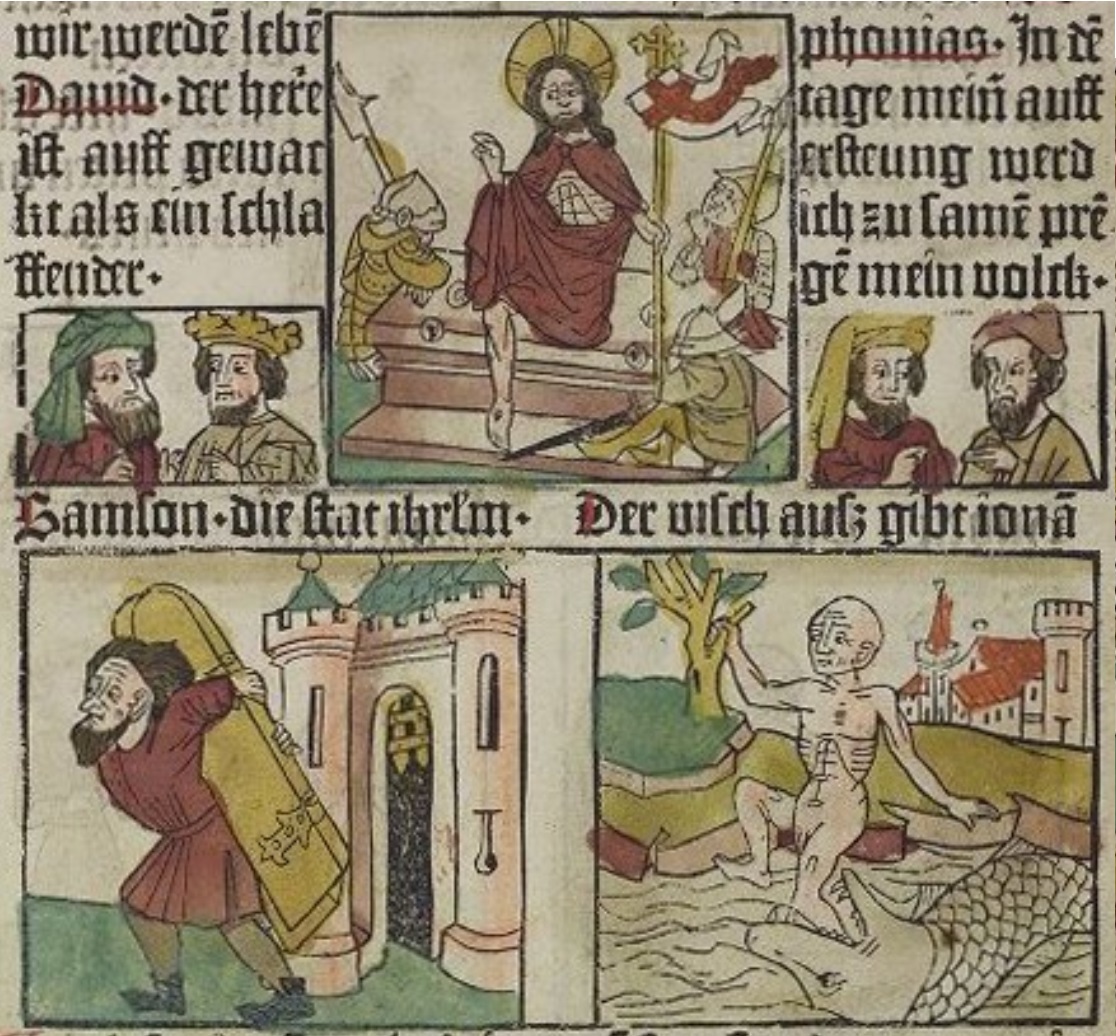 wir werdē lebē
Dauid · der here
ist auff gewac
kt als ein schla
ffender ·
phonias · In dē
tage mein̄ auff
ersteung werd
ich zu samē prē
gē mein volck ·
Samson · die stat ihrlm · Der visch ausz gibt ionā